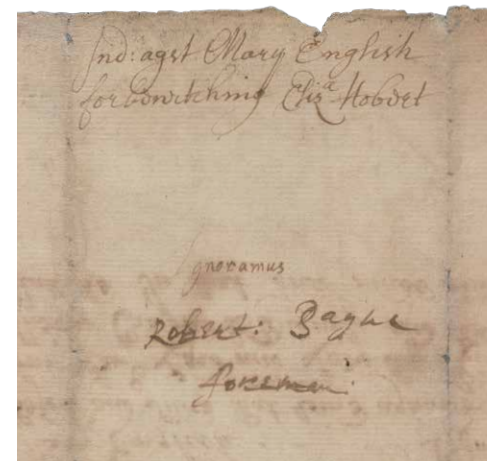 Ind: agst Mary English
for bewitching Eliz^a Hobert
Ignoramus
Robert: Payne
foreman: